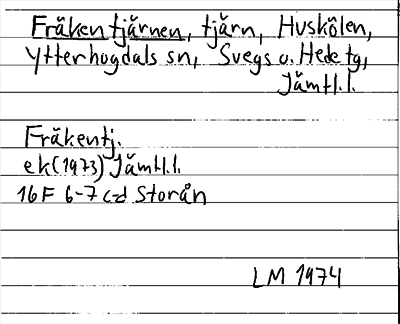 Fräkentjärnen, tjärn, Huskölen,
Ytterhogdals sn, Svegs o. Hede tg,
Jämtl.l.
Fräkentj.
ek (1973) Jämtl.l.
16F 6-7 c-d Storån
LM 1974